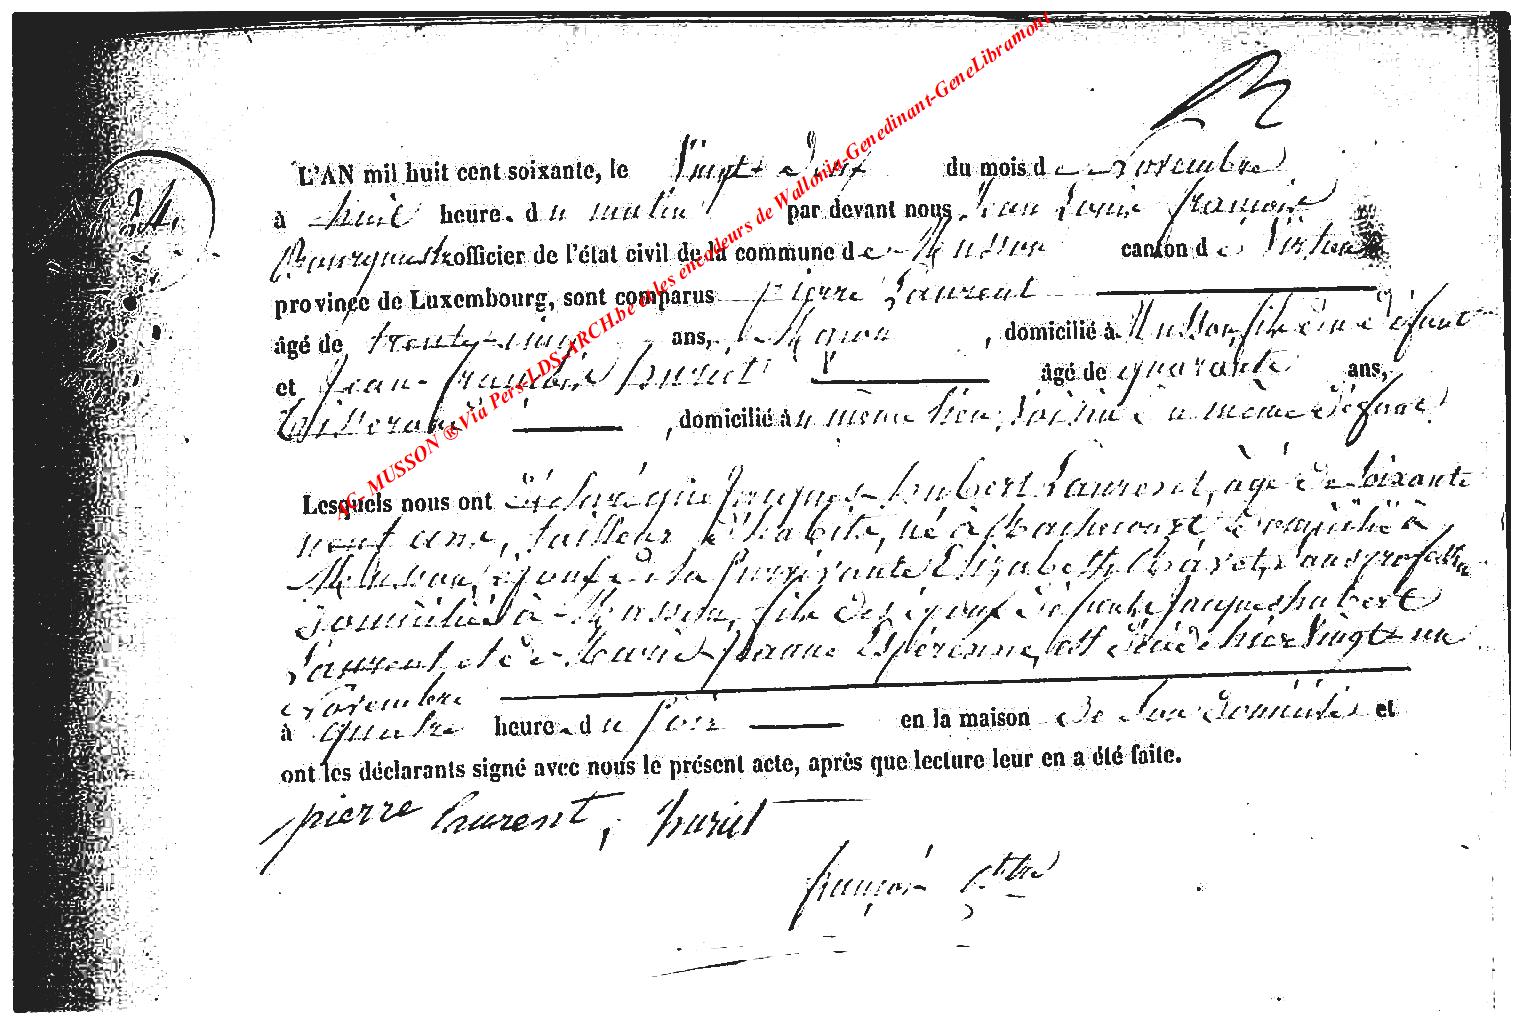 24.
L'AN mil huit cent soixante, le Vingt-deux du mois de Novembre
à huit heure. du matin par devant nous Jean Louis François
Bourgmestre officier de l'état civil de la commune de Musson canton de Virton
province de Luxembourg, sont comparus pierre Laurent
âgé de trente-cinq ans, Maçon, domicilié à Musson, fils du défunt
et Jean-François huriet âgé de quarante ans,
Tisserand, domicilié au même lieu, Voisin du même défunt
Lesquels nous ont déclaré que Jacques-hubert Laurent, âgé de soixante
neuf ans, tailleur d'habits, né à Rachecourt, domicilié à
Musson, époux de la survivante Elizabeth, sans profession
domiciliée à Musson, fils des époux défunts Jacques hubert
Laurent et de Marie-Jeanne Espérenne, est décédé hier Vingt-un
Novembre
à quatre heure. du soir en la maison de son domicile et
ont les déclarants signé avec nous le présent acte, après que lecture leur en a été faite.
pierre laurent, huriet
françois
AC- MUSSON ® Via Pers-LDS-ARCH.be et les encodeurs de Wallonia-Genedinant-GeneLibramont